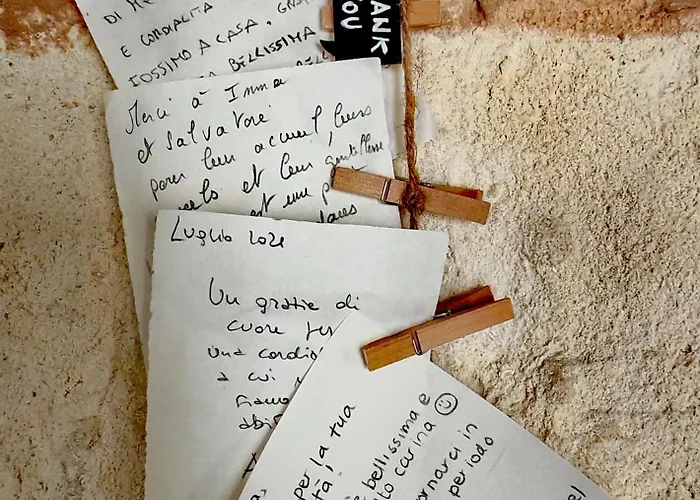 THANK
YOU
E CORDIALITÀ
A CASA.
BELLISSIMA
Merci à Imma
et Salvatore
pour leur accueil, leurs
et leur gentillesse
est une
Luglio 2021
Un grazie di
cuore per
una cordia
a cui
siamo
abit
per la tua
tà,
è bellissima e
to carina ☺
ornarci in
periodo